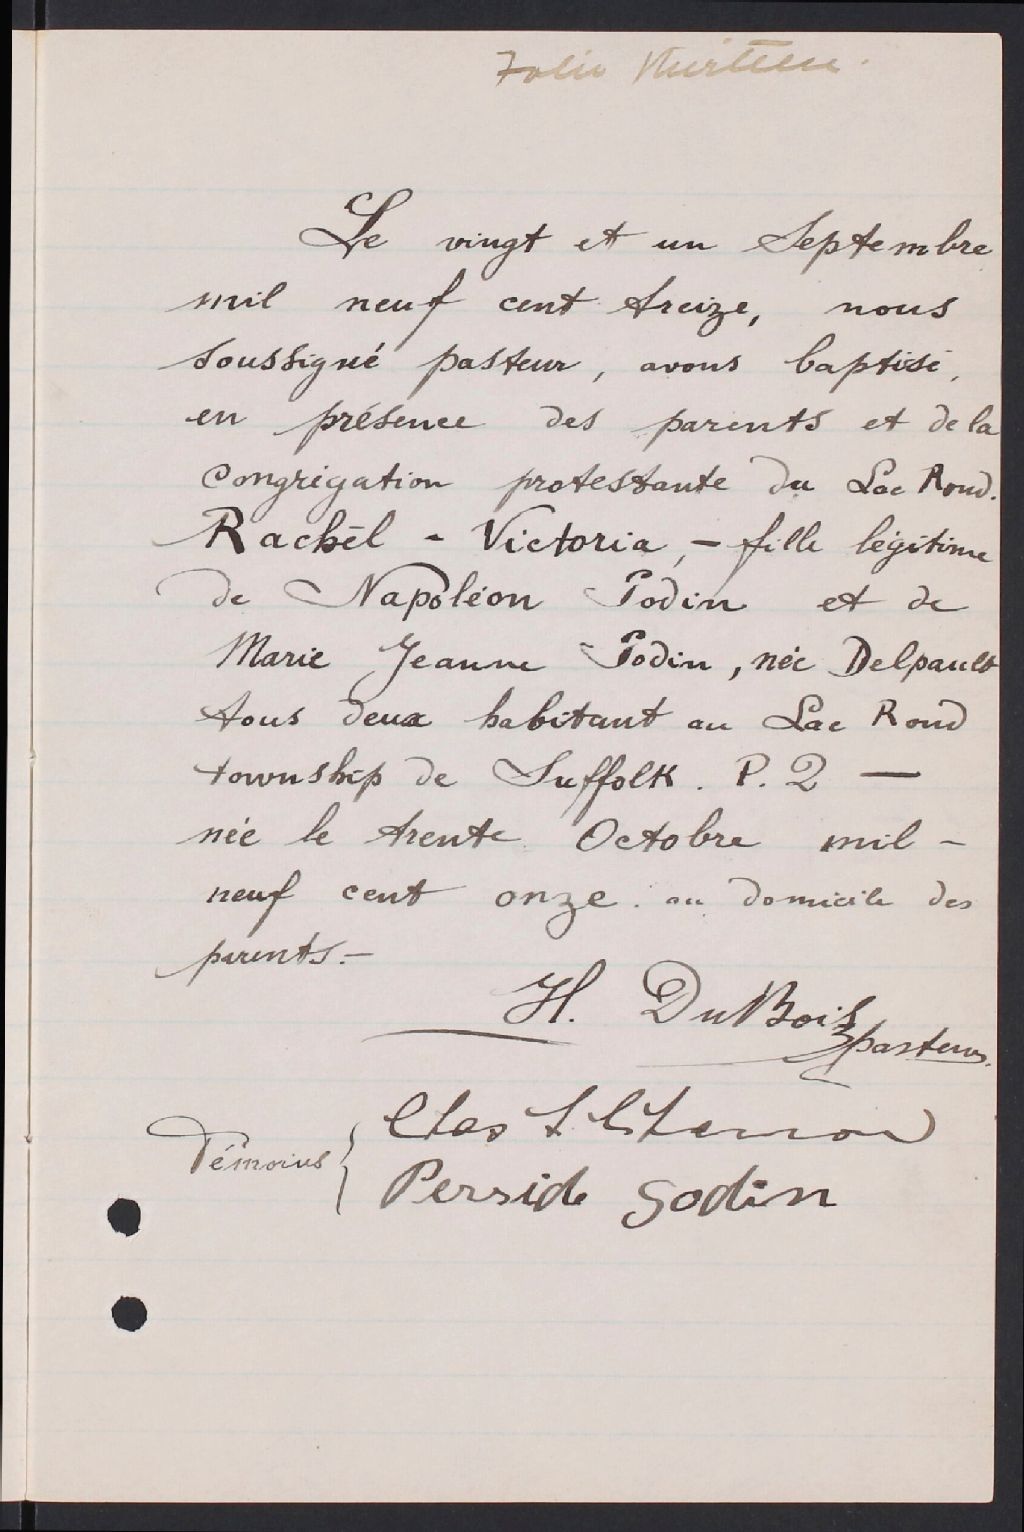 Folio thirteen.
Le vingt et un Septembre
mil neuf cent treize, nous
soussigné pasteur, avons baptisé,
en présence des parents et de la
congrégation protestante du Lac Rond.
Rachel - Victoria, - fille légitime
de Napoléon Podin et de
Marie Jeanne Podin, née Delpault
tous deux habitant au Lac Rond
township de Suffolk. P. Q —
née le trente Octobre mil -
neuf cent onze. au domicile des
parents. -
H. DuBois
pasteur.
Chas
Témoins
Perside Godin